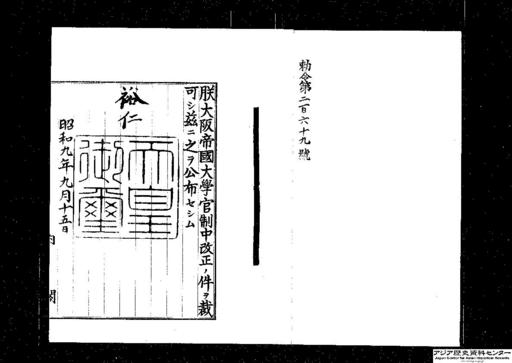 勅令第二百六十九號
朕大阪帝國大學官制中改正ノ件ヲ裁
可シ茲ニ之ヲ公布セシム
裕仁
天皇御璽
昭和九年九月十五日
内閣
アジア歴史資料センター
Japan Center for Asian Historical Records